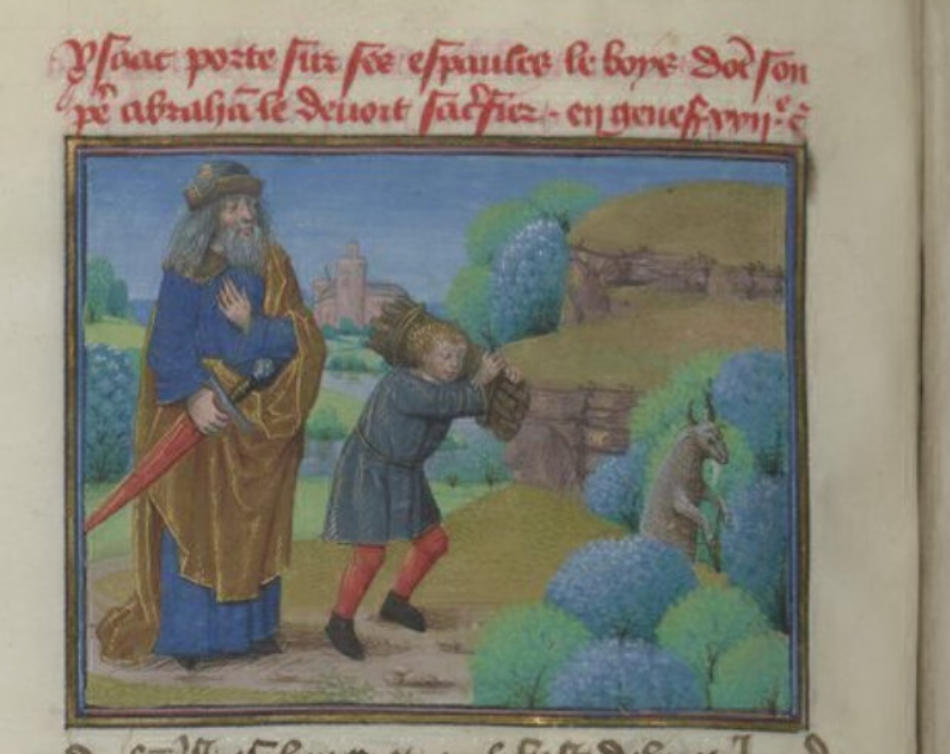 Ysaac porte sur ses espaules le boys dōt son
pe᷑ abrahā le devoit sac᷑fier · en genes xxii·e c̄